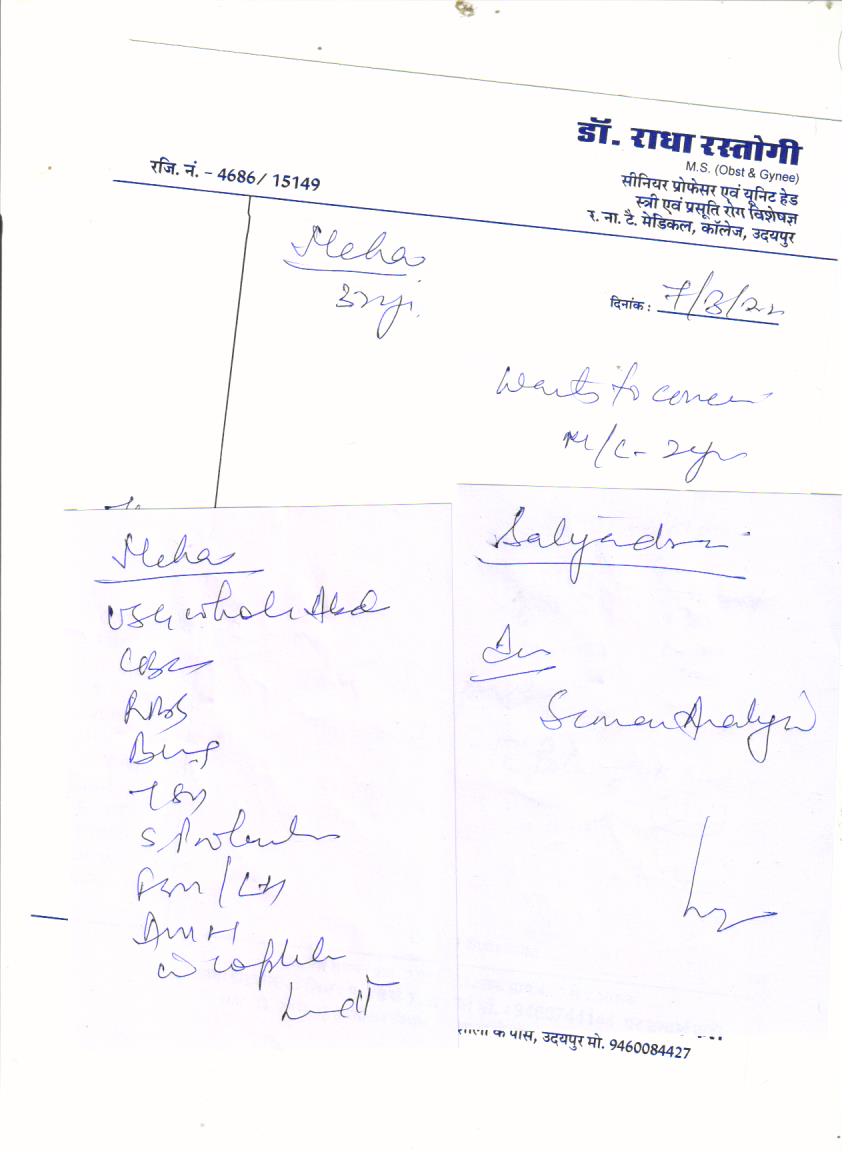 डॉ. राधा रस्तोगी
M.S. (Obst & Gynee)
सीनियर प्रोफेसर एवं यूनिट हेड
स्त्री एवं प्रसूति रोग विशेषज्ञ
र. ना. टै. मेडिकल, कॉलेज, उदयपुर
रजि. नं. - 4686/ 15149
दिनांक : 7/3/22
Neha
wants to
M/C - 2yr
Neha
USG whole Abd
CBC
RBS
TSH
S Prolactin
FSH/LH
AMH
Adv
Semen Analysis
के पास, उदयपुर मो. 9460084427